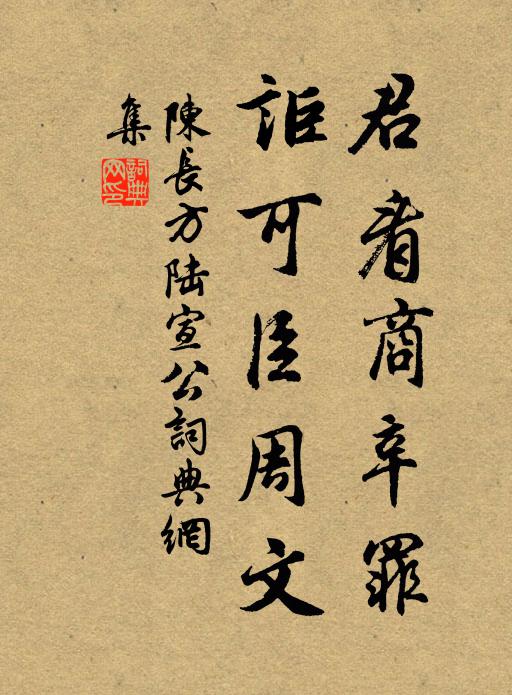 君看商辛罪
詎可臣周文
陳長方陸宣公詞典網
集
詞典
網印